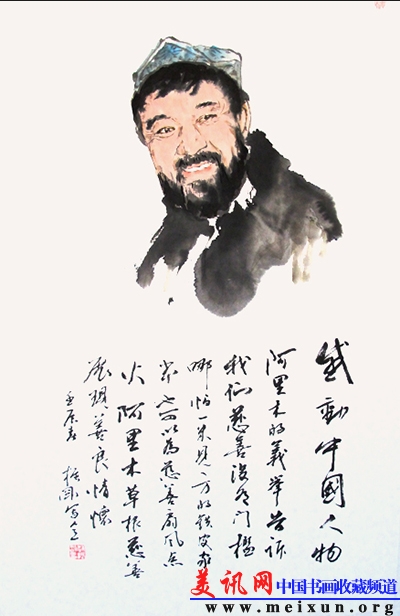 感動中國人物
阿里木的義舉告訴
我们慈善没有门槛
哪怕一米見方的铁皮家
當也可以为慈善扇風点
火 阿里木草根慈善
展現善良情懷
壬辰春
美讯网 中国书画收藏频道
www.meixun.org